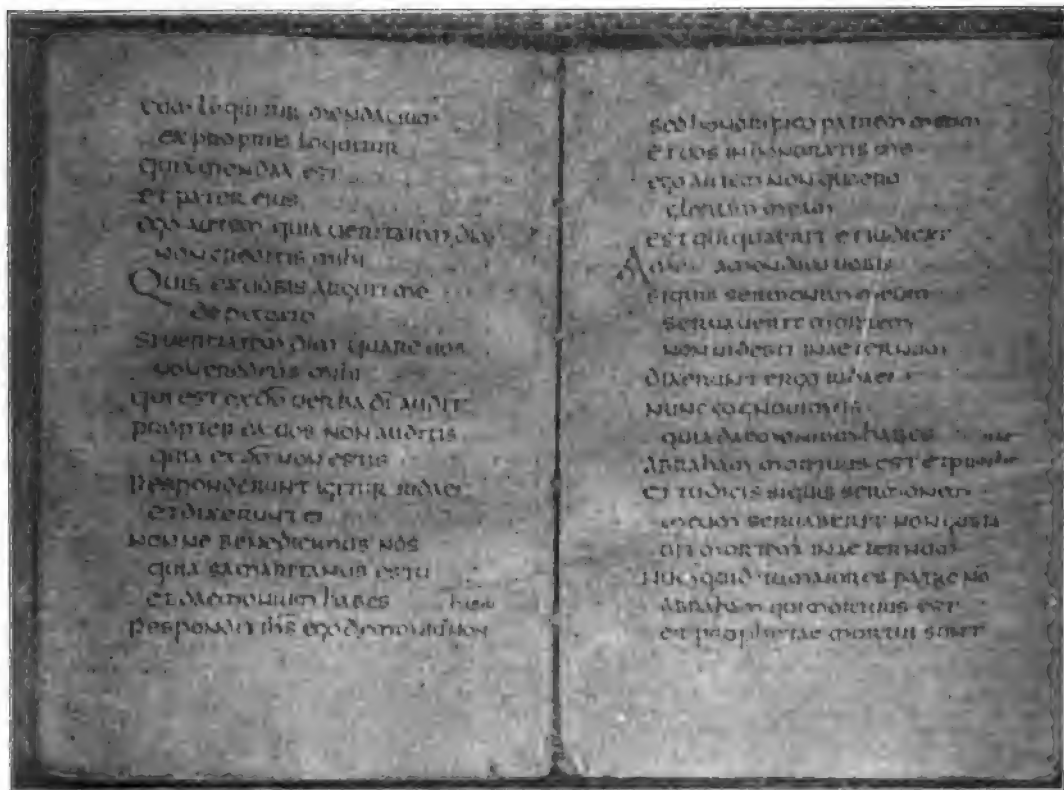 cum loquitur mendacium
ex propriis loquitur
quia mendax est
et pater eius
ego autem quia ueritatem dico
non creditis mihi
Quis ex uobis arguit me
de peccato
si ueritatem dico quare uos
non creditis mihi
qui est ex dō uerba dī audit
propterea uos non auditis
quia ex dō non estis
Responderunt igitur iudaei
et dixerunt ei
nonne bene dicimus nos
quia samaritanus es tu
et daemonium habes
Respondit ihs ego demonium non
habeo
sed honorifico patrem meum
et uos inhonoratis me
ego autem non quaero
gloriam meam
est qui quaerit et iudicat
Amen amen dico uobis
si quis sermonem meum
seruauerit mortem
non uidebit in aeternum
dixerunt ergo iudaei
nunc cognouimus
quia daemonium habes
abraham mortuus est et prophetae
et tu dicis si quis sermonem
meum seruaberit non gusta
bit mortem in aeternum
Numquid tu maior es patre
abraham qui mortuus est
et prophetae mortui sunt